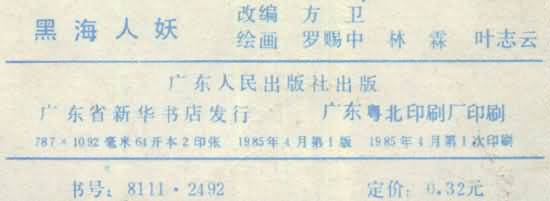 黑海人妖
改编 方 卫
绘画 罗赐中 林 霖 叶志云
广东人民出版社出版
广东省新华书店发行 广东粤北印刷厂印刷
787×1092毫米64开本2印张 1985年4月第1版 1985年4月第1次印刷
书号：8111·2492 定价：0.32元